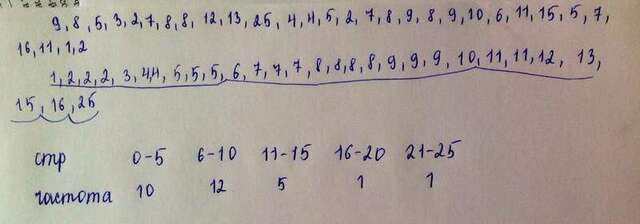 9, 8, 5, 3, 2, 7, 8, 8, 12, 13, 25, 4, 4, 5, 2, 7, 8, 9, 8, 9, 10, 6, 11, 15, 5, 7,
16, 11, 1, 2
1, 2, 2, 2, 3, 4, 4, 5, 5, 5, 6, 7, 7, 7, 8, 8, 8, 8, 9, 9, 9, 10, 11, 11, 12, 13,
15, 16, 25
стр 0-5 6-10 11-15 16-20 21-25
частота 10 12 5 1 1